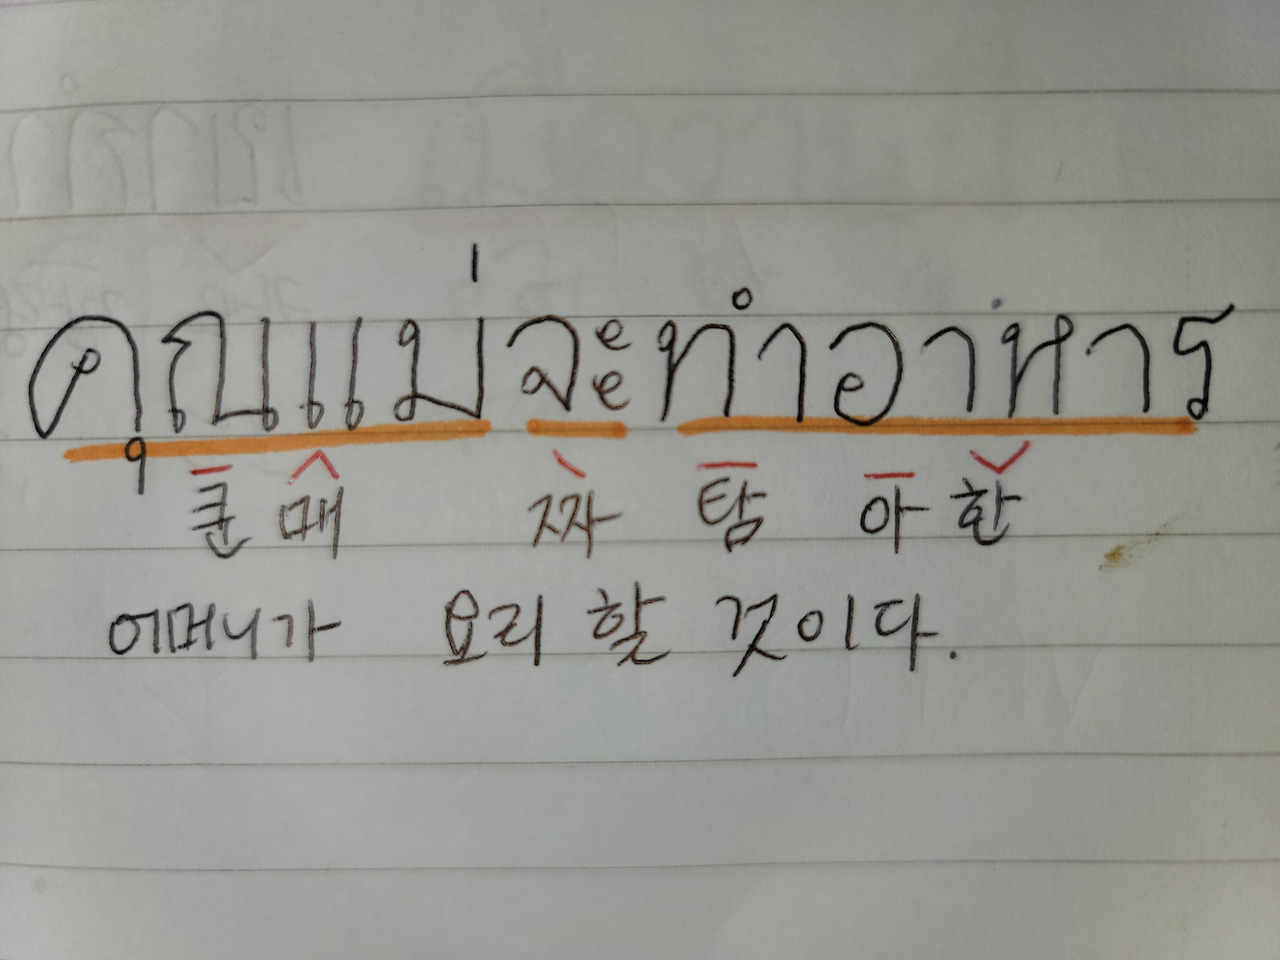 คุณแม่จะทำอาหาร
쿤 매 짜 탐 아 한
어머니가 요리 할 것이다.